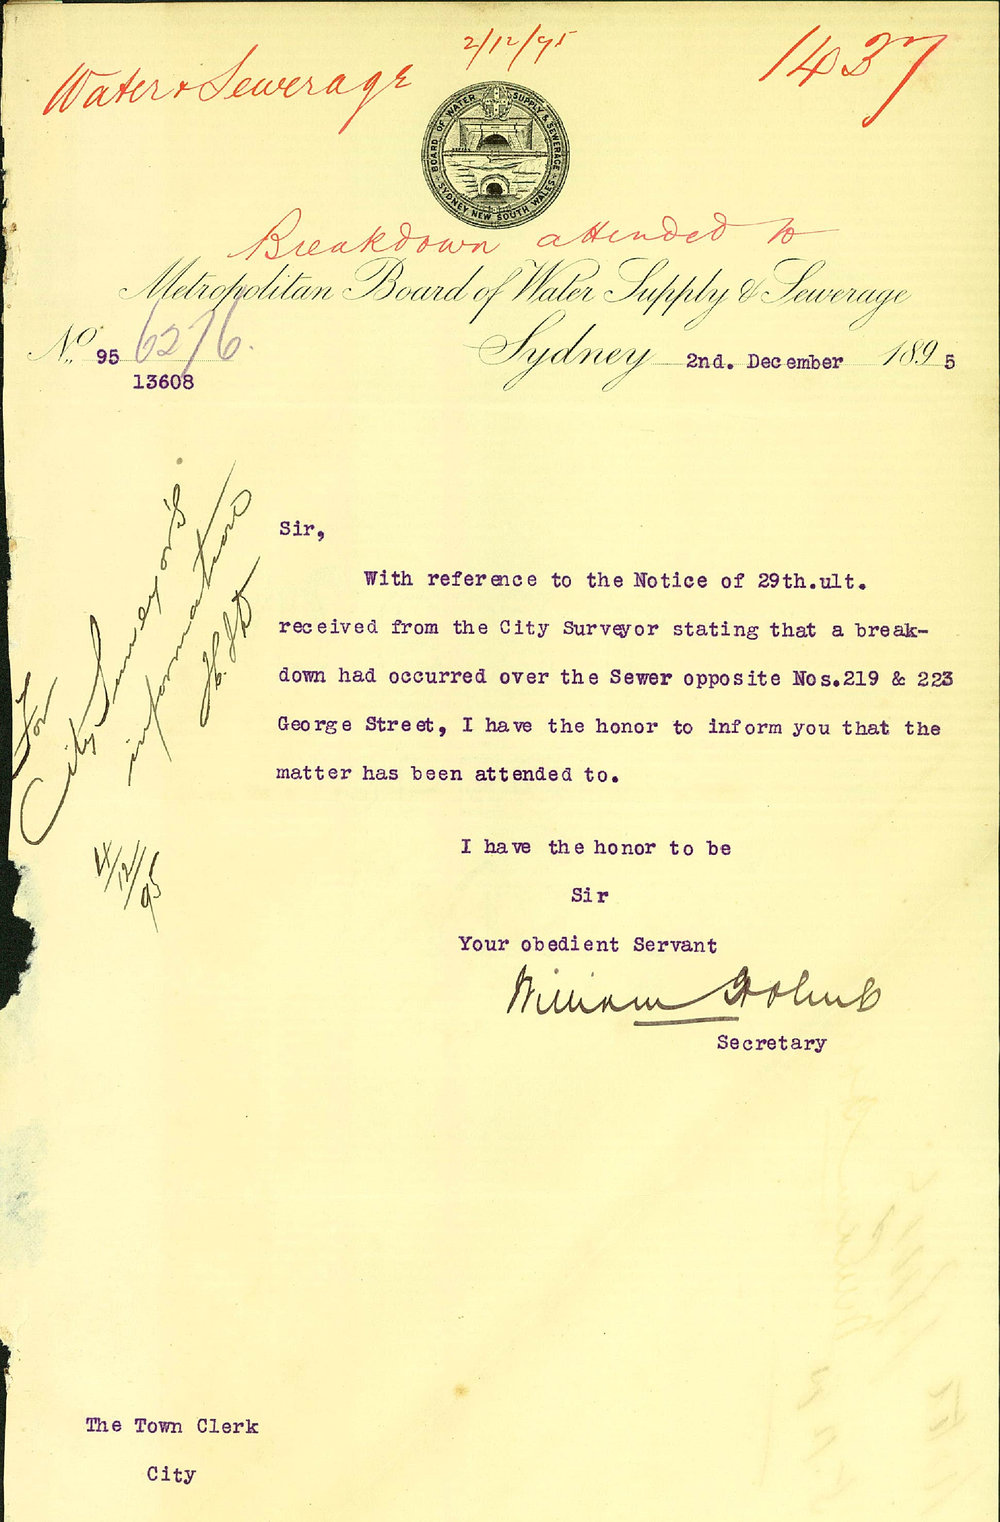 2/12/95
Water & Sewerage
1437
BOARD OF WATER SUPPLY & SEWERAGE
SYDNEY NEW SOUTH WALES
Breakdown attended to
Metropolitan Board of Water Supply & Sewerage
No. 95 6276.
13608
Sydney 2nd. December 1895
For
City Surveyor's
information
4/12/95
Sir,
With reference to the Notice of 29th.ult.
received from the City Surveyor stating that a break-
down had occurred over the Sewer opposite Nos.219 & 223
George Street, I have the honor to inform you that the
matter has been attended to.
I have the honor to be
Sir
Your obedient Servant
William Holmes
Secretary
The Town Clerk
City